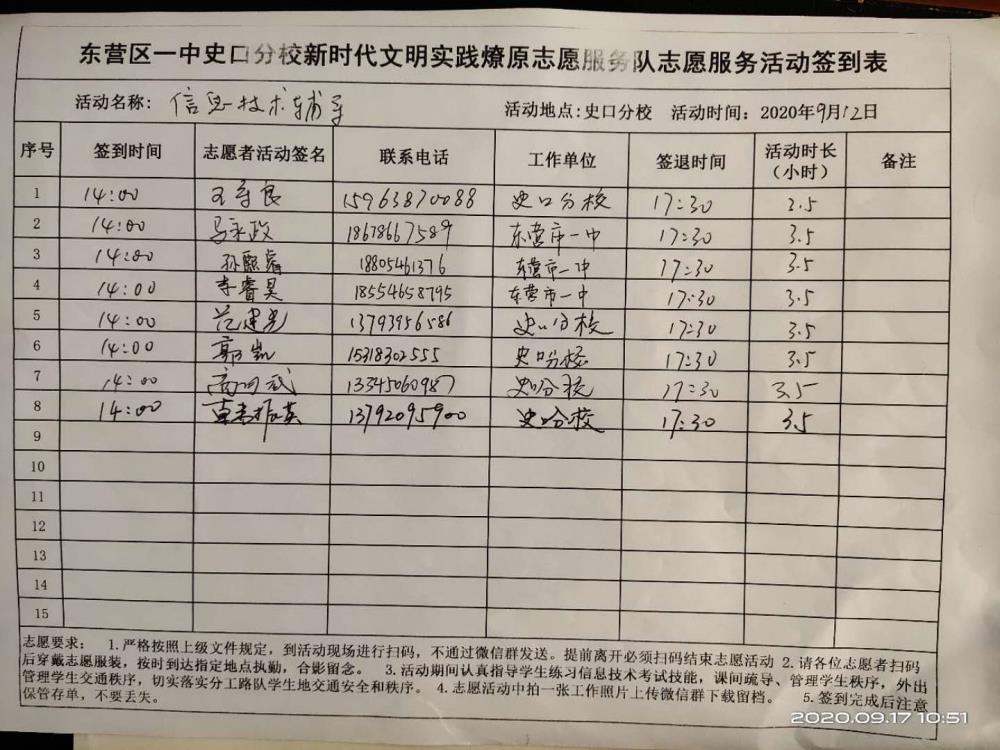 东营区一中史口分校新时代文明实践燎原志愿服务队志愿服务活动签到表
活动名称: 信息技术辅导 活动地点:史口分校 活动时间: 2020年9月12日
序号 签到时间 志愿者活动签名 联系电话 工作单位 签退时间 活动时长（小时） 备注
1 14:00 15963870088 史口分校 17:30 2.5
2 14:00 马永政 18678667589 东营市一中 17:30 3.5
3 14:00 孙熙睿 18805461376 东营市一中 17:30 3.5
4 14:00 李睿昊 18554658795 东营市一中 17:30 3.5
5 14:00 范建光 13793956586 史口分校 17:30 3.5
6 14:00 郭凯 15318302555 史口分校 17:30 3.5
7 14:00 13345060987 史口分校 17:30 3.5
8 14:00 13792095900 史口分校 17:30 3.5
9
10
11
12
13
14
15
志愿要求: 1.严格按照上级文件规定，到活动现场进行扫码，不通过微信群发送。提前离开必须扫码结束志愿活动 2.请各位志愿者扫码
后穿戴志愿服装，按时到达指定地点执勤，合影留念。 3.活动期间认真指导学生练习信息技术考试技能，课间疏导、管理学生秩序，外出
管理学生交通秩序，切实落实分工路队学生地交通安全和秩序。 4.志愿活动中拍一张工作照片上传微信群下载留档。 5.签到完成后注意
保管存单，不要丢失。
2020.09.17 10:51